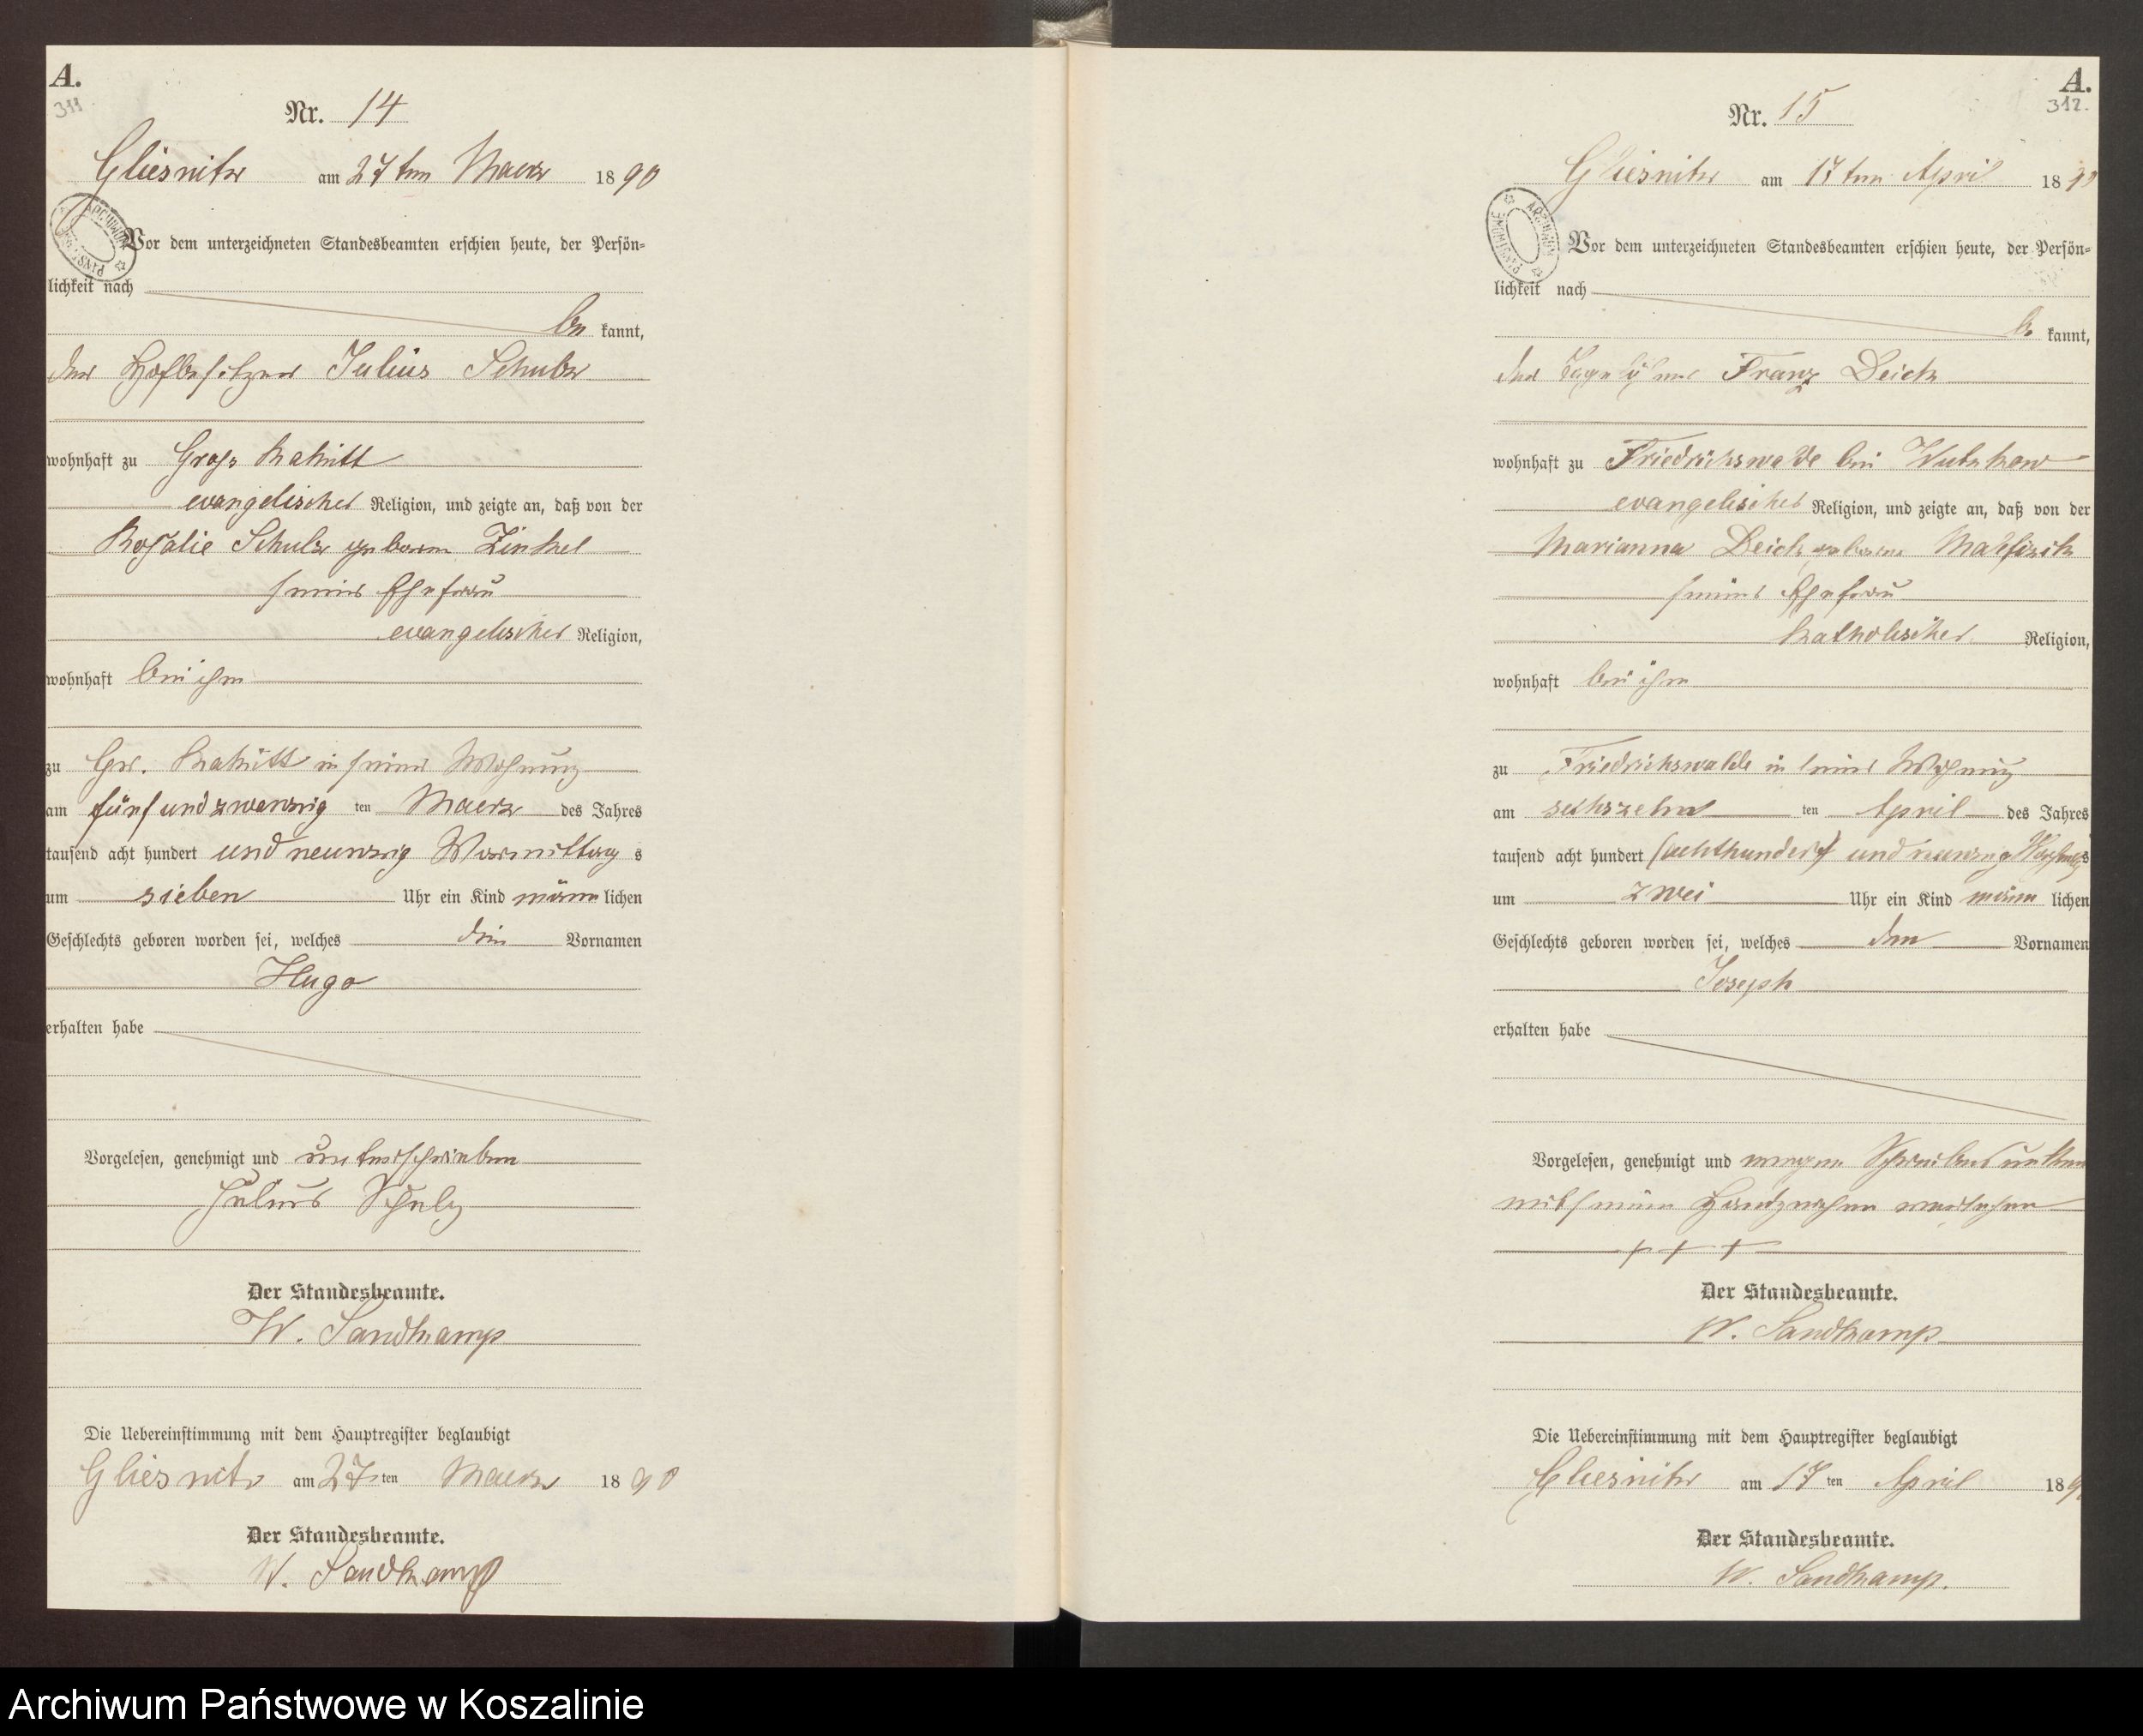 A.
311
Nr. 14
Gliesnitz am 27ten Maerz 1890
ARCHIWUM PAŃSTWOWE
Vor dem unterzeichneten Standesbeamten erschien heute, der Persön=
lichkeit nach
be kannt,
der Hofbesitzer Julius Schulz
wohnhaft zu Gross Rakitt
evangelischer Religion, und zeigte an, daß von der
Rosalie Schulz geboren Zinkel
seiner Ehefrau
evangelischer Religion,
wohnhaft bei ihm
zu Gr. Rakitt in seiner Wohnung
am fünfundzwanzig ten Maerz des Jahres
tausend acht hundert und neunzig Vormittag s
um sieben Uhr ein Kind männ lichen
Geschlechts geboren worden sei, welches den Vornamen
Hugo
erhalten habe
Vorgelesen, genehmigt und unterschrieben
Julius Schulz
Der Standesbeamte.
W. Sandkamp
Die Uebereinstimmung mit dem Hauptregister beglaubigt
Gliesnitz am 27 ten Maerz 1890
Der Standesbeamte.
W. Sandkamp
A.
312.
Nr. 15
Gliesnitz am 17ten April 1890
ARCHIWUM PAŃSTWOWE
Vor dem unterzeichneten Standesbeamten erschien heute, der Persön=
lichkeit nach
be kannt,
der Tagelöhner Franz Deick
wohnhaft zu Friedrichswalde bei Wutzkow
evangelischer Religion, und zeigte an, daß von der
Marianna Deick geborene
seiner Ehefrau
katholischer Religion,
wohnhaft bei ihm
zu Friedrichswalde in seiner Wohnung
am sechszehn ten April des Jahres
tausend acht hundert (achthundert) und neunzig s
um zwei Uhr ein Kind männ lichen
Geschlechts geboren worden sei, welches den Vornamen
Joseph
erhalten habe
Vorgelesen, genehmigt und wegen Schreibens unkun
mit seinen Handzeichen versehen
+ + +
Der Standesbeamte.
W. Sandkamp
Die Uebereinstimmung mit dem Hauptregister beglaubigt
Gliesnitz am 17 ten April 189
Der Standesbeamte.
W. Sandkamp.
Archiwum Państwowe w Koszalinie